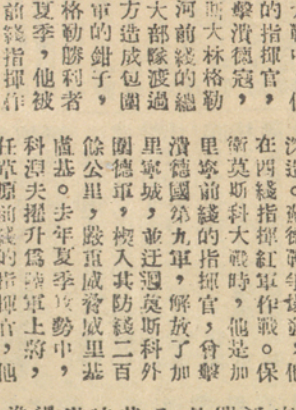 的指揮官，
擊潰德寇，
斯大林格勒
河前綫的總
大部隊渡過
方造成包圍
軍的鉗子，
格勒勝利者
夏季，他被
前綫指揮作
深造。蘇德戰爭
在西綫指揮紅軍作戰。保
衞莫斯科大戰時，他是加
里寧前綫的指揮官，曾擊
潰德國第九軍，解放了加
里寧城，並迂迴莫斯科外
圍德軍，楔入其防綫二百
餘公里，嚴重威脅威里基
盧基。去年夏季攻勢中，
科湼夫擢升爲陸軍上將，
任草原前綫的指揮官，他